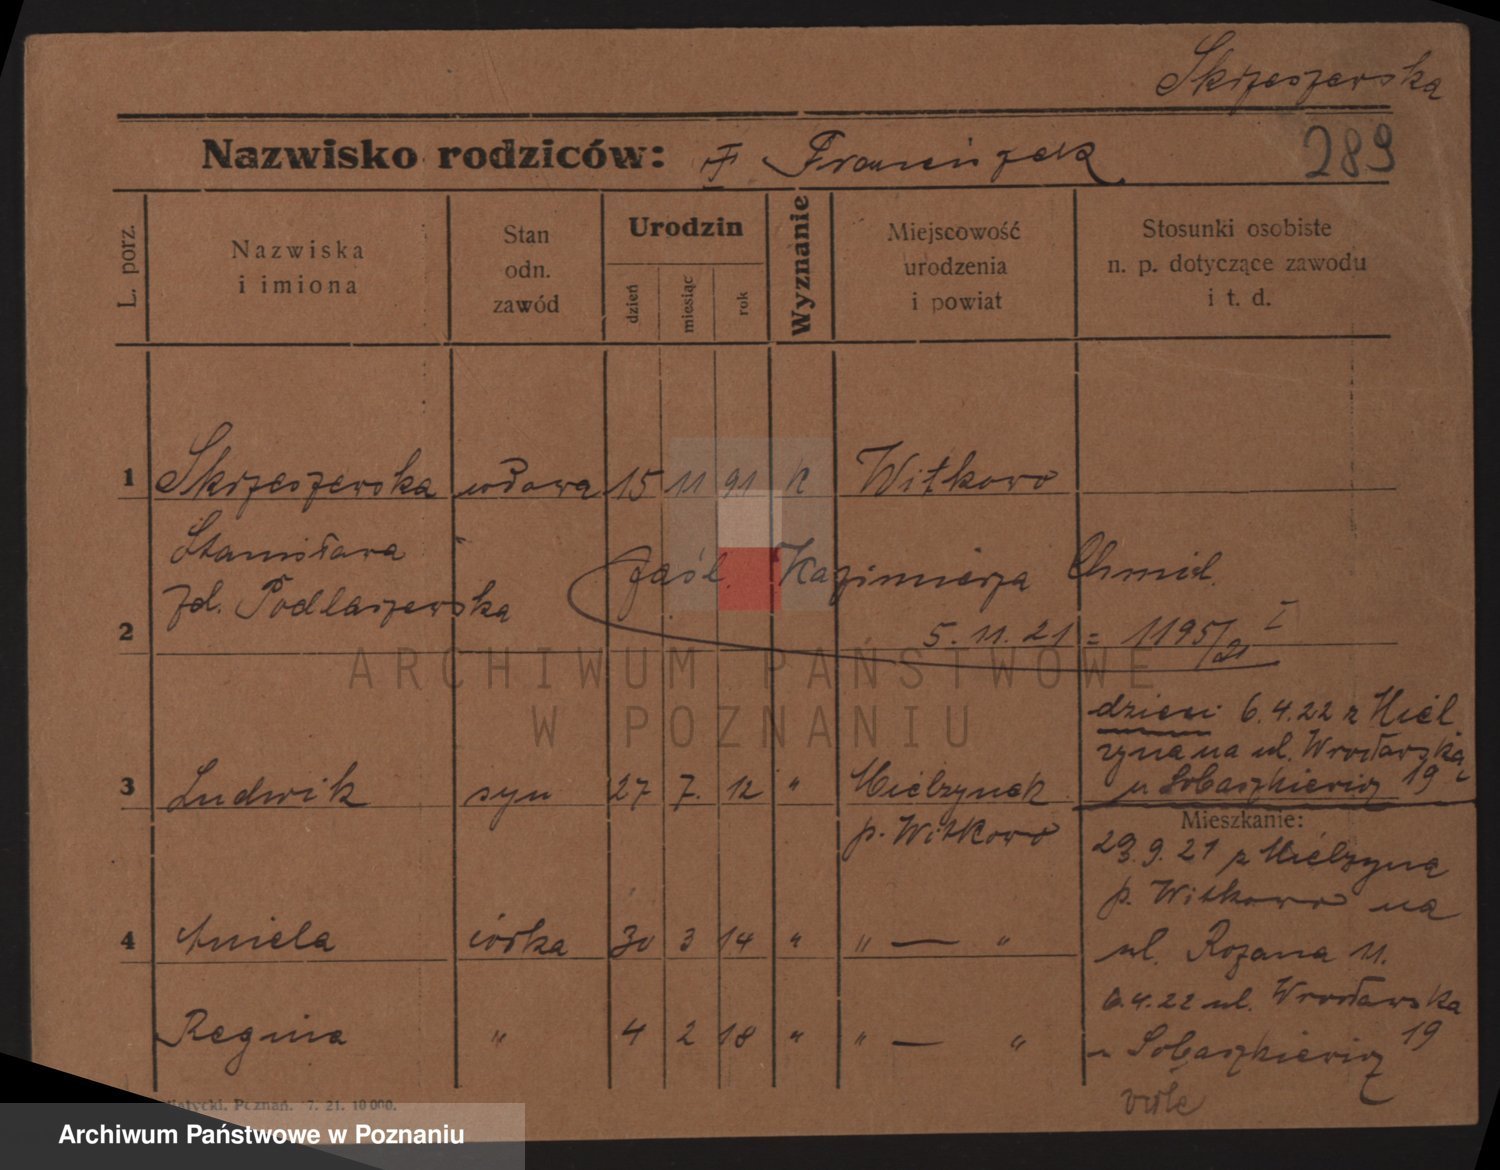 Skrzeszewska
Nazwisko rodziców: † Franciszek
289
L. porz.
Nazwiska
i imiona
Stan
odn.
zawód
Urodzin
dzień
miesiąc
rok
Wyznanie
Miejscowość
urodzenia
i powiat
Stosunki osobiste
n. p. dotyczące zawodu
i t. d.
1 Skrzeszewska wdowa 15 11 91 k Witkowo
Stanisława
zd. Podlaszewska
zaśl. Kazimierza Chmiel.
2
5. 11. 21 = 1195/21 I
ARCHIWUM PAŃSTWOWE
W POZNANIU
dzieci 6.4.22 z Miel
żyna na ul. Wrocławską
u Sobaszkiewicz 19
3 Ludwik syn 27 7. 12 " Mielżynek
p. Witkowo
Mieszkanie:
29.9.21 z Mielżyna
p. Witkowo na
ul. Rożana 11.
4 Aniela córka 30 3 14 " " — "
6.4.22 ul. Wrocławska
Regina " 4 2 18 " " — "
u Sobaszkiewicz 19
Poznań. 7. 21. 10 000.
Archiwum Państwowe w Poznaniu